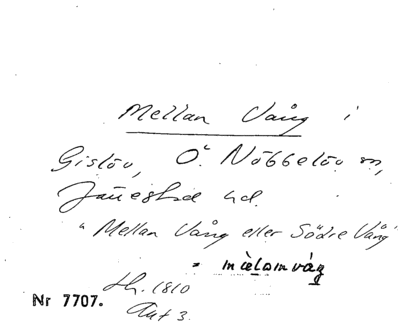 Mellan Vång i
Gislöv, Ö. Nöbbelöv sn,
Järrestad hd.
"Mellan Vång eller Södre Vång"
= mèlomvåg
Lh. 1810
Akt 3.
Nr 7707.